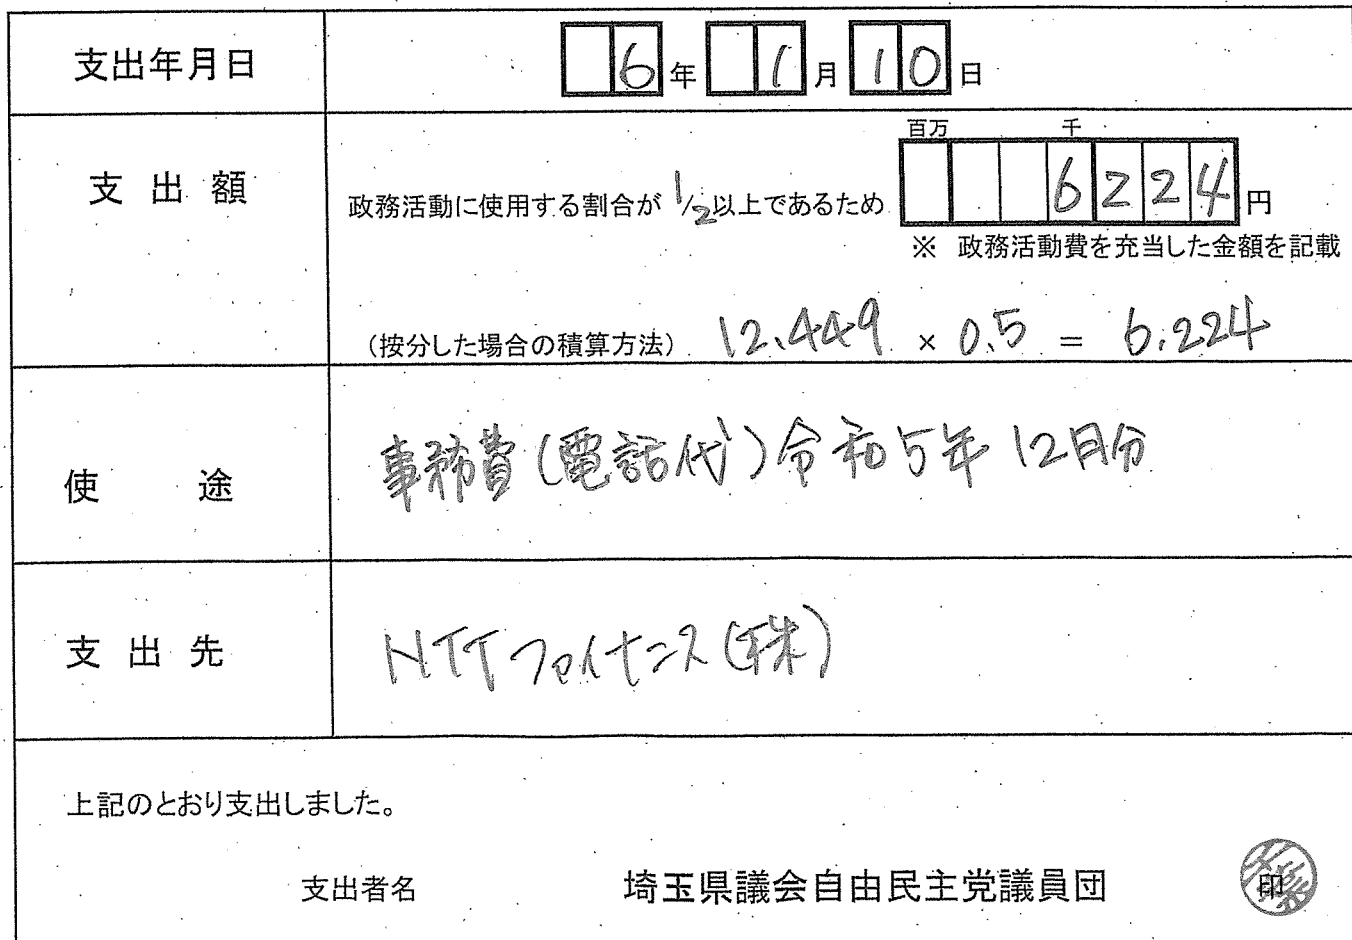 支出年月日 6年 1月 10日
百万 千
支出額 政務活動に使用する割合が 1/2 以上であるため 6224 円
※ 政務活動費を充当した金額を記載
(按分した場合の積算方法) 12.449 × 0.5 = 6.224
使途 事務費(電話代)令和5年12月分
支出先 NTTファイナンス(株)
上記のとおり支出しました。
支出者名 埼玉県議会自由民主党議員団 印